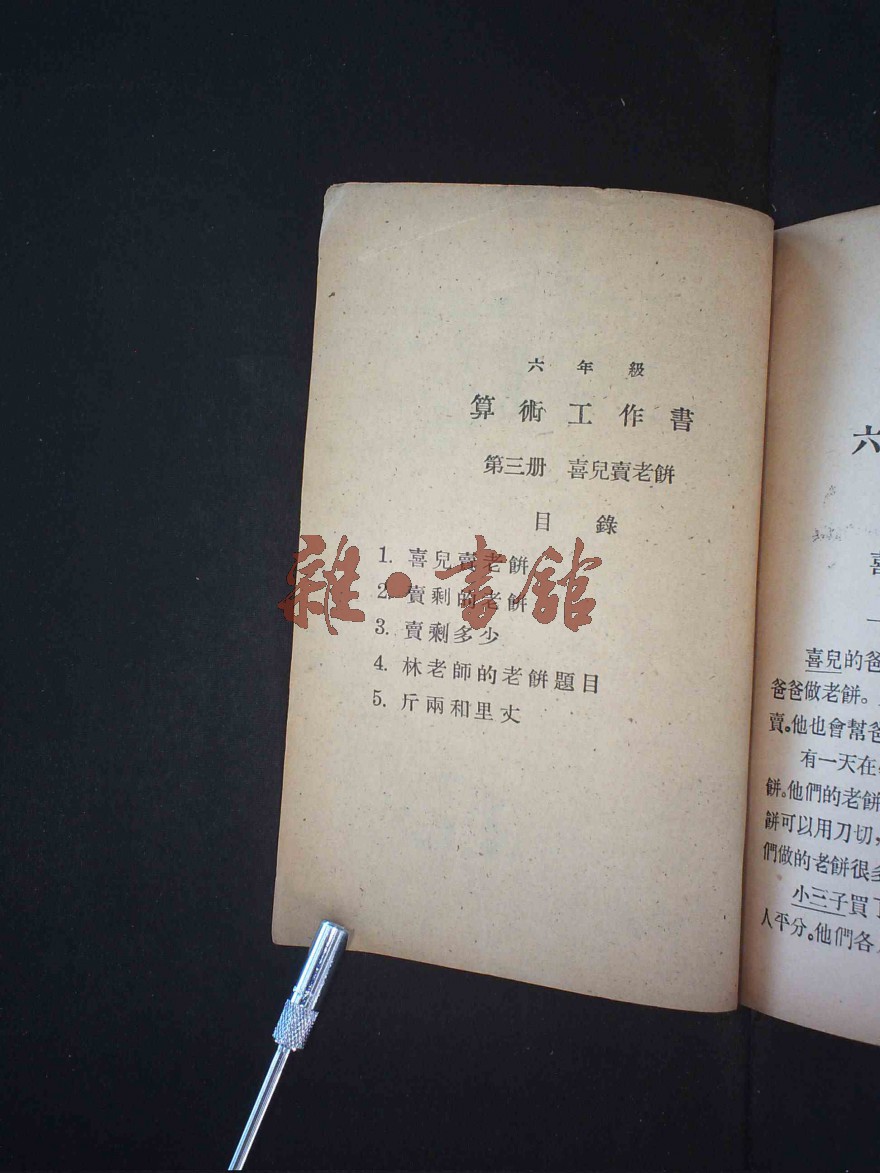 六年級
算術工作書
第三册 喜兒賣老餅
目錄
1. 喜兒賣老餅
2. 賣剩的老餅
3. 賣剩多少
4. 林老師的老餅題目
5. 斤兩和里丈
雜·書館
六
喜
一
喜兒的爸
爸爸做老餅。
賣。他也會幫爸
有一天在
餅。他們的老餅
餅可以用刀切，
們做的老餅很多
小三子買了
人平分。他們各